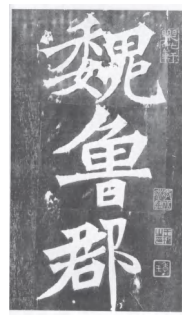 魏魯郡